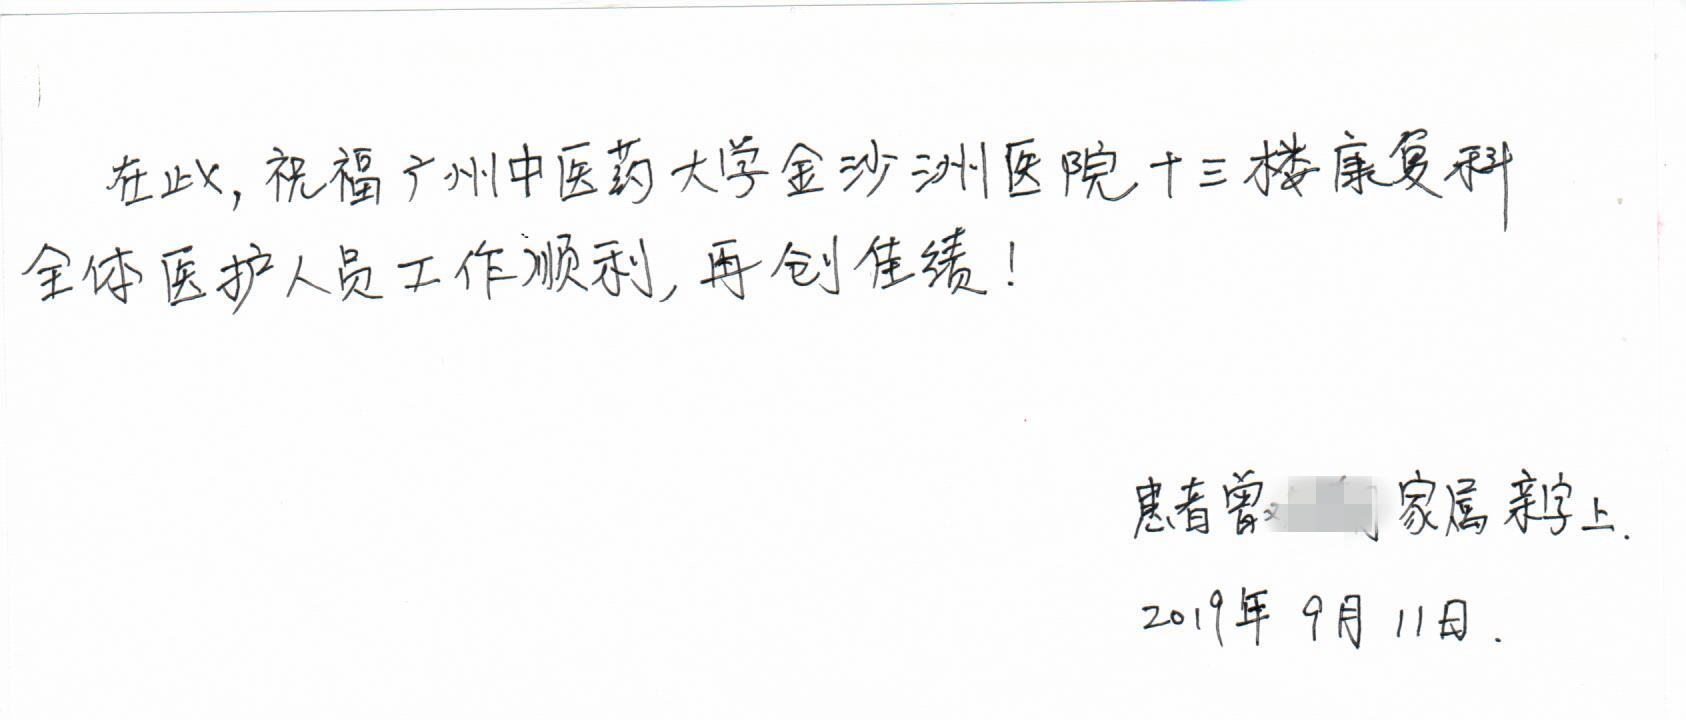 在此,祝福广州中医药大学金沙洲医院十三楼康复科
全体医护人员工作顺利,再创佳绩!
患者曾 家属亲字上.
2019年 9月 11日.